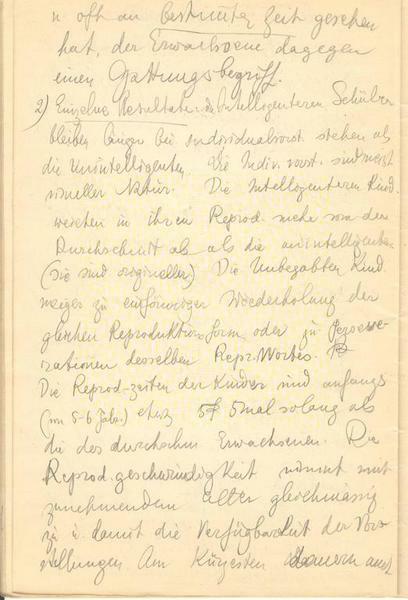 u oft an bestimmter Zeit gesehen
hat, der Erwachsene dagegen
einen Gattungsbegriff.
2) Einzelne Resultate. Die Intelligenteren Schüler
bleiben länger bei Individualvorst. stehen als
die unintelligenten. Die Indiv. vorst. sind meist
visueller Natur. Die Intelligenteren Kind.
weichen in ihren Reprod. mehr von dem
Durchschnitt ab als die unintelligenten
(sie sind origineller) Die Unbegabten Kind.
neigen zu einförmiger Wiederholung der
gleichen Reproduktionsform oder zu
derselben Repr. Wortes.
Die Reprod-zeiten der Kinder sind anfangs
(von 5-6 Jahr.) etwa 5mal solang als
die des durchschn. Erwachsenen. Die
Reprod.geschwindigkeit nimmt mit
zunehmendem Alter gleichmässig
zu u. damit die Verfügbarkeit der Vor-
stellungen. Am Kürzesten dauern